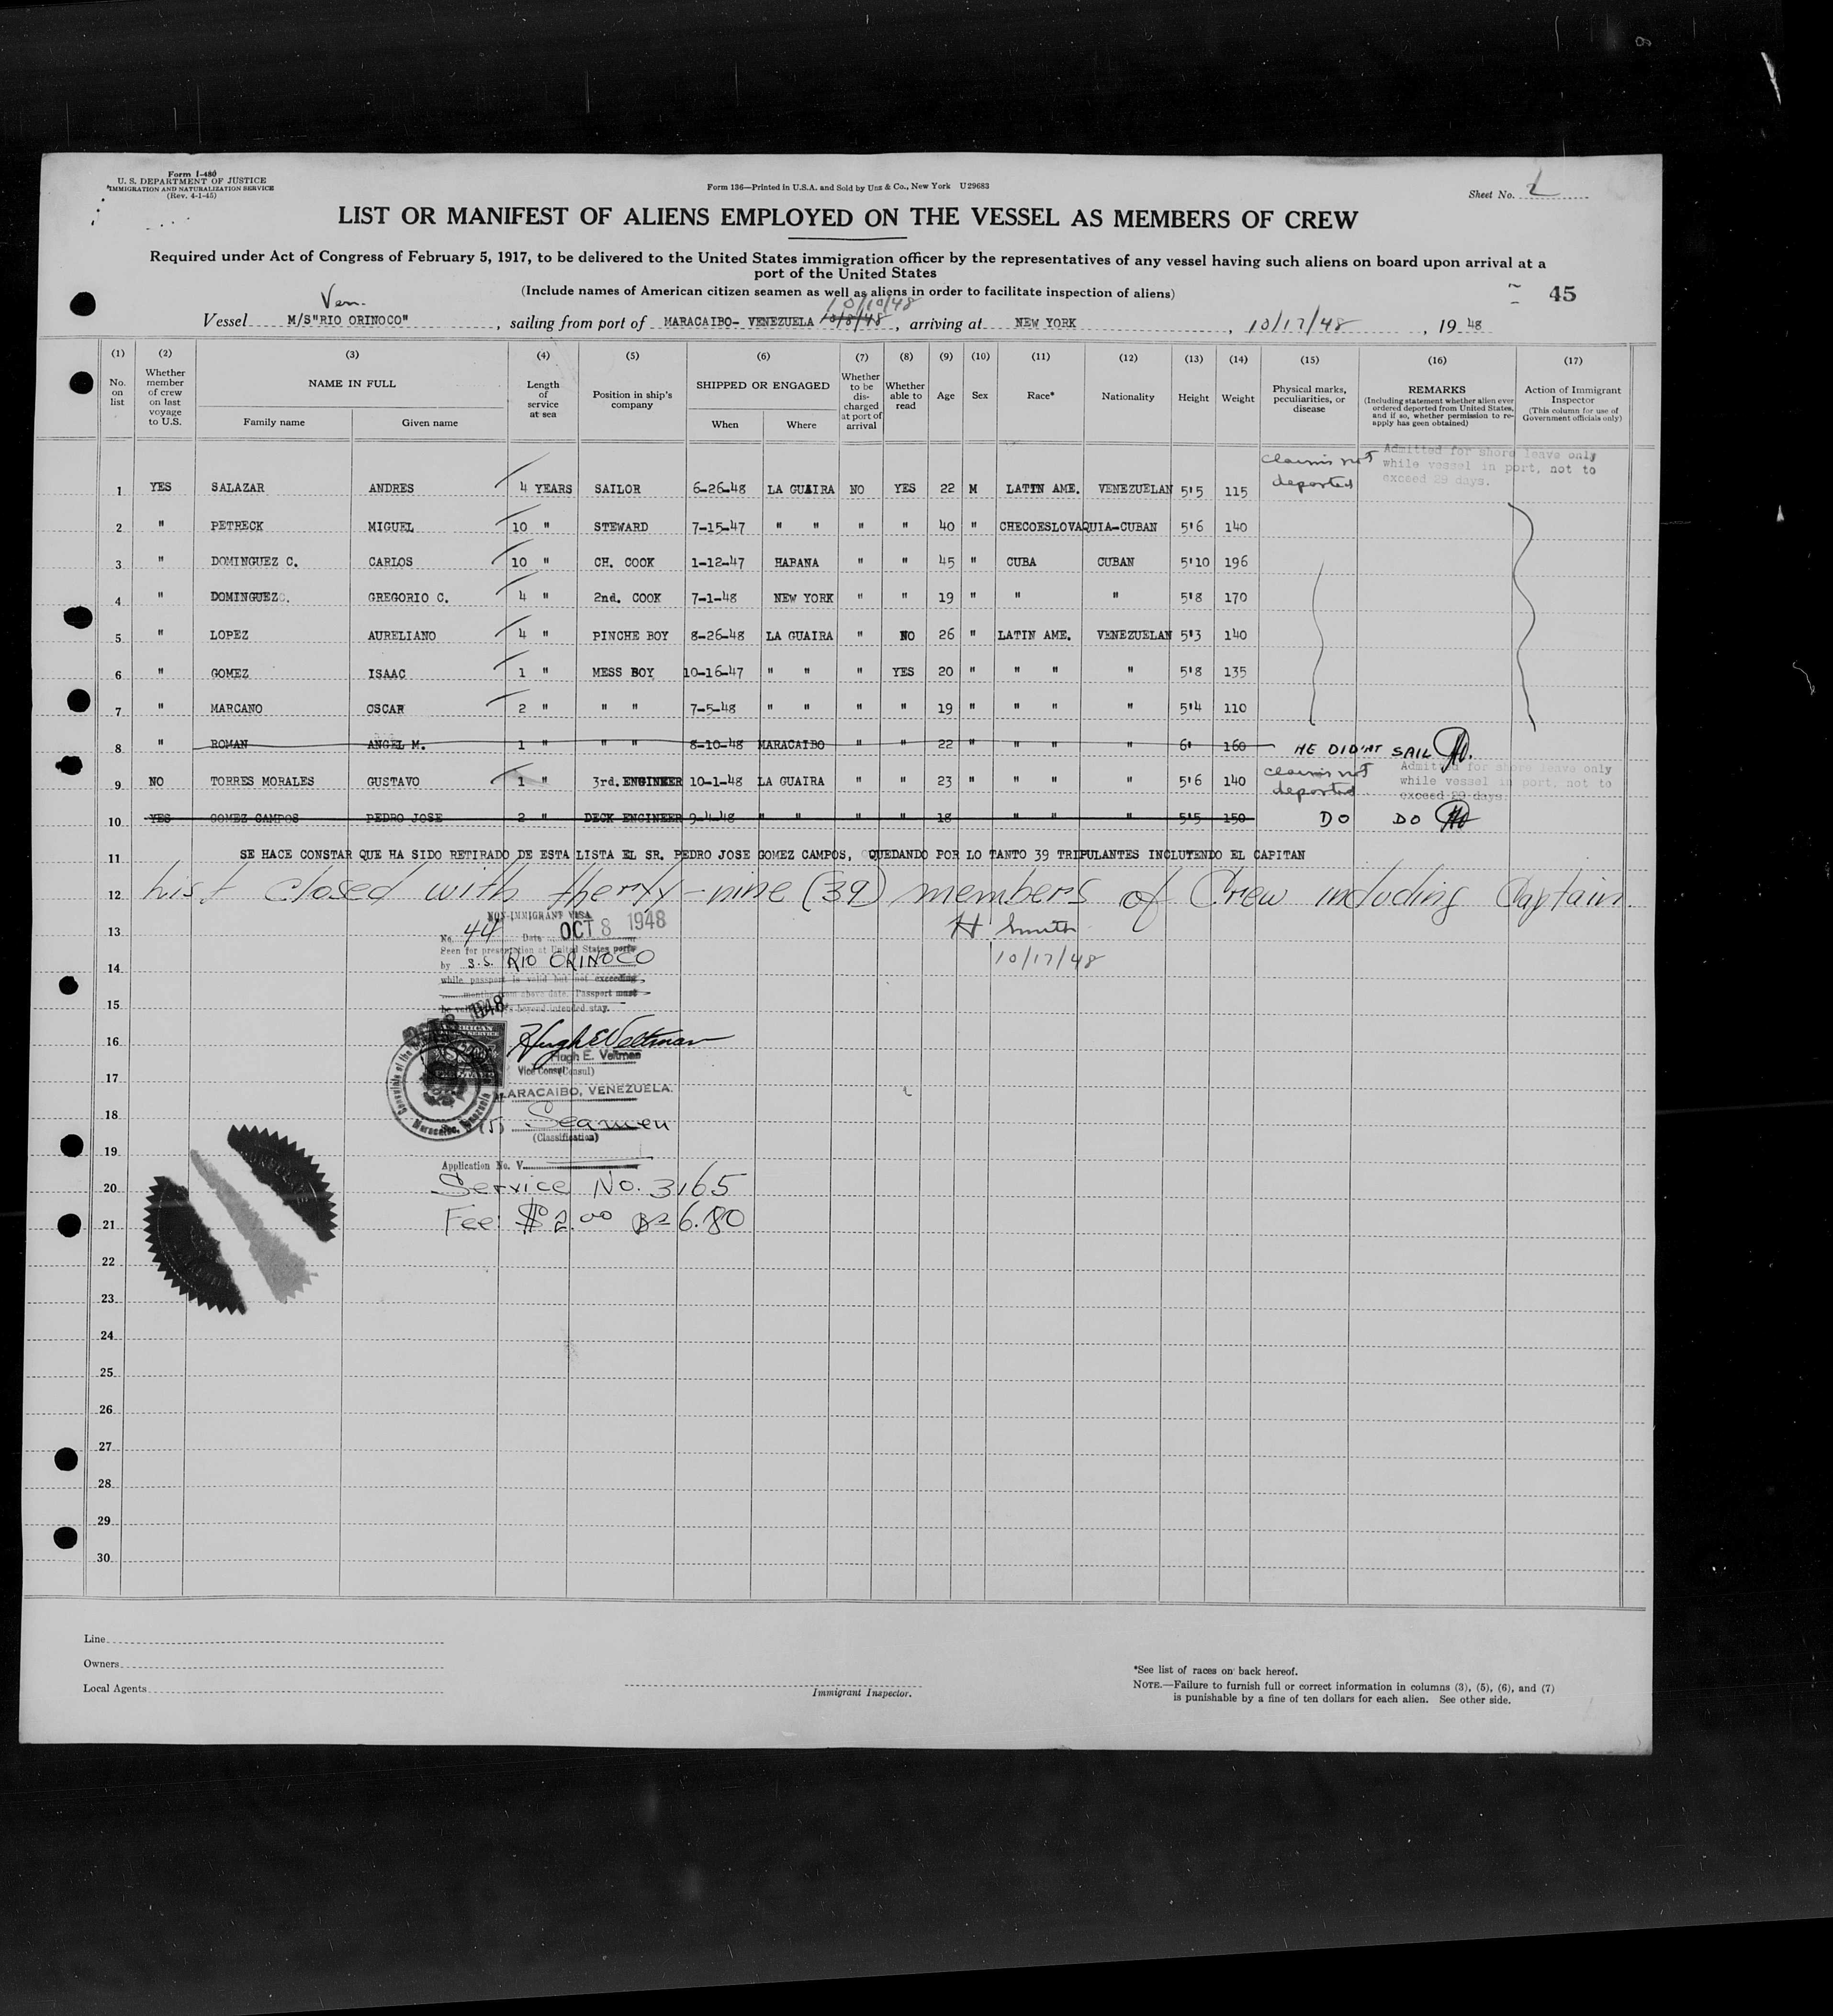 Form I-480
U. S. DEPARTMENT OF JUSTICE
IMMIGRATION AND NATURALIZATION SERVICE
(Rev. 4-1-45)
Form 136—Printed in U.S.A. and Sold by Unz & Co., New York U29683
Sheet No. 2
LIST OR MANIFEST OF ALIENS EMPLOYED ON THE VESSEL AS MEMBERS OF CREW
Required under Act of Congress of February 5, 1917, to be delivered to the United States immigration officer by the representatives of any vessel having such aliens on board upon arrival at a
port of the United States
(Include names of American citizen seamen as well as aliens in order to facilitate inspection of aliens)
45
Ven. 10/10/48
Vessel M/S"RIO ORINOCO", sailing from port of MARACAIBO- VENEZUELA 10/8/48, arriving at NEW YORK, 10/17/48, 19 48
(1) (2) (3) (4) (5) (6) (7) (8) (9) (10) (11) (12) (13) (14) (15) (16) (17)
No. on list
Whether member of crew on last voyage to U.S.
NAME IN FULL
Family name Given name
Length of service at sea
Position in ship's company
SHIPPED OR ENGAGED
When Where
Whether to be discharged at port of arrival
Whether able to read
Age Sex Race* Nationality Height Weight
Physical marks, peculiarities, or disease
REMARKS
(Including statement whether alien ever ordered deported from United States, and if so, whether permission to reapply has been obtained)
Action of Immigrant Inspector
(This column for use of Government officials only)
claims not deported
Admitted for shore leave only
while vessel in port, not to
exceed 29 days.
1 YES SALAZAR ANDRES 4 YEARS SAILOR 6-26-48 LA GUAIRA NO YES 22 M LATIN AME. VENEZUELAN 5'5 115
2 " PETRECK MIGUEL 10 " STEWARD 7-15-47 " " " " 40 " CHECOESLOVAQUIA-CUBAN 5'6 140
3 " DOMINGUEZ C. CARLOS 10 " CH. COOK 1-12-47 HABANA " " 45 " CUBA CUBAN 5'10 196
4 " DOMINGUEZ C. GREGORIO C. 4 " 2nd. COOK 7-1-48 NEW YORK " " 19 " " " 5'8 170
5 " LOPEZ AURELIANO 4 " PINCHE BOY 8-26-48 LA GUAIRA " NO 26 " LATIN AME. VENEZUELAN 5'3 140
6 " GOMEZ ISAAC 1 " MESS BOY 10-16-47 " " " YES 20 " " " " 5'8 135
7 " MARCANO OSCAR 2 " " " 7-5-48 " " " " 19 " " " " 5'4 110
8 " ROMAN ANGEL M. 1 " " " 8-10-48 MARACAIBO " " 22 " " " " 6' 160 HE DIDN'T SAIL
9 NO TORRES MORALES GUSTAVO 1 " 3rd. ENGINEER 10-1-48 LA GUAIRA " " 23 " " " " 5'6 140 claims not deported
Admitted for shore leave only
while vessel in port, not to
exceed 29 days.
10 YES GOMEZ CAMPOS PEDRO JOSE 2 " DECK ENGINEER 9-4-48 " " " " 18 " " " " 5'5 150 DO DO
11 SE HACE CONSTAR QUE HA SIDO RETIRADO DE ESTA LISTA EL SR. PEDRO JOSE GOMEZ CAMPOS, QUEDANDO POR LO TANTO 39 TRIPULANTES INCLUYENDO EL CAPITAN
12 List closed with therty-nine (39) members of Crew including Captain.
NON-IMMIGRANT VISA
13 No. 44 Date OCT 8 1948 H Smith
Seen for presentation at United States ports
14 by S.S. RIO ORINOCO 10/17/48
while passport is valid but not exceeding
months from above date. Passport must
15 be valid beyond intended stay.
16 Hugh E Veltman
Hugh E. Veltman
17 Vice Consul (Consul)
MARACAIBO, VENEZUELA.
18 (5) Seamen
(Classification)
19
Application No. V
20 Service No. 3165
21 Fee: $2.00 Bs 6.80
22
23
24
25
26
27
28
29
30
Line
Owners
Local Agents
Immigrant Inspector.
*See list of races on back hereof.
NOTE.—Failure to furnish full or correct information in columns (3), (5), (6), and (7)
is punishable by a fine of ten dollars for each alien. See other side.